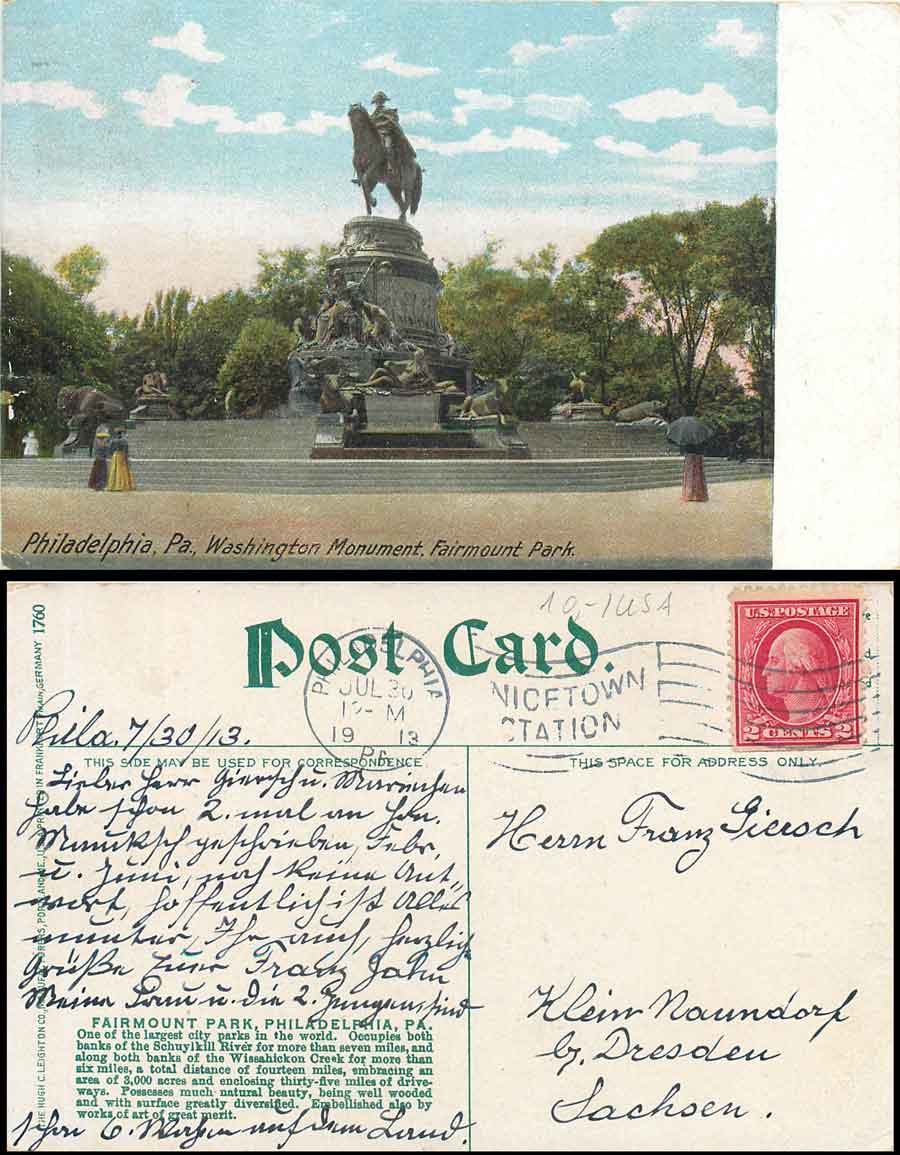 Philadelphia, Pa., Washington Monument, Fairmount Park.
10,-/USA
Post Card.
PHILADELPHIA
JUL 30
M
19 13
Pa
NICETOWN
STATION
U.S. POSTAGE
2 CENTS 2
Phila. 7/30/13.
THIS SIDE MAY BE USED FOR CORRESPONDENCE
THIS SPACE FOR ADDRESS ONLY.
Lieber Herr Giersch u. Mariechen
habe schon 2. mal an Hrn.
Mauksch geschrieben, Febr.
u. Juni, noch keine Ant„
wort, hoffentlich ist Alles
munter, Ihr auch, herzliche
Grüße Euer Franz Jahn
Meine Frau u. die 2. Jungen sind
FAIRMOUNT PARK, PHILADELPHIA, PA.
One of the largest city parks in the world. Occupies both
banks of the Schuylkill River for more than seven miles, and
along both banks of the Wissahickon Creek for more than
six miles, a total distance of fourteen miles, embracing an
area of 3,000 acres and enclosing thirty-five miles of drive-
ways. Possesses much natural beauty, being well wooded
and with surface greatly diversified. Embellished also by
works of art of great merit.
schon 6. Wochen auf dem Land.
Herrn Franz Giersch
Klein Naundorf
b/ Dresden
Sachsen.
THE HUGH C. LEIGHTON CO., MANUFACTURERS, PORTLAND, ME., U.S.A. PRINTED IN FRANKFORT MAIN, GERMANY 1760